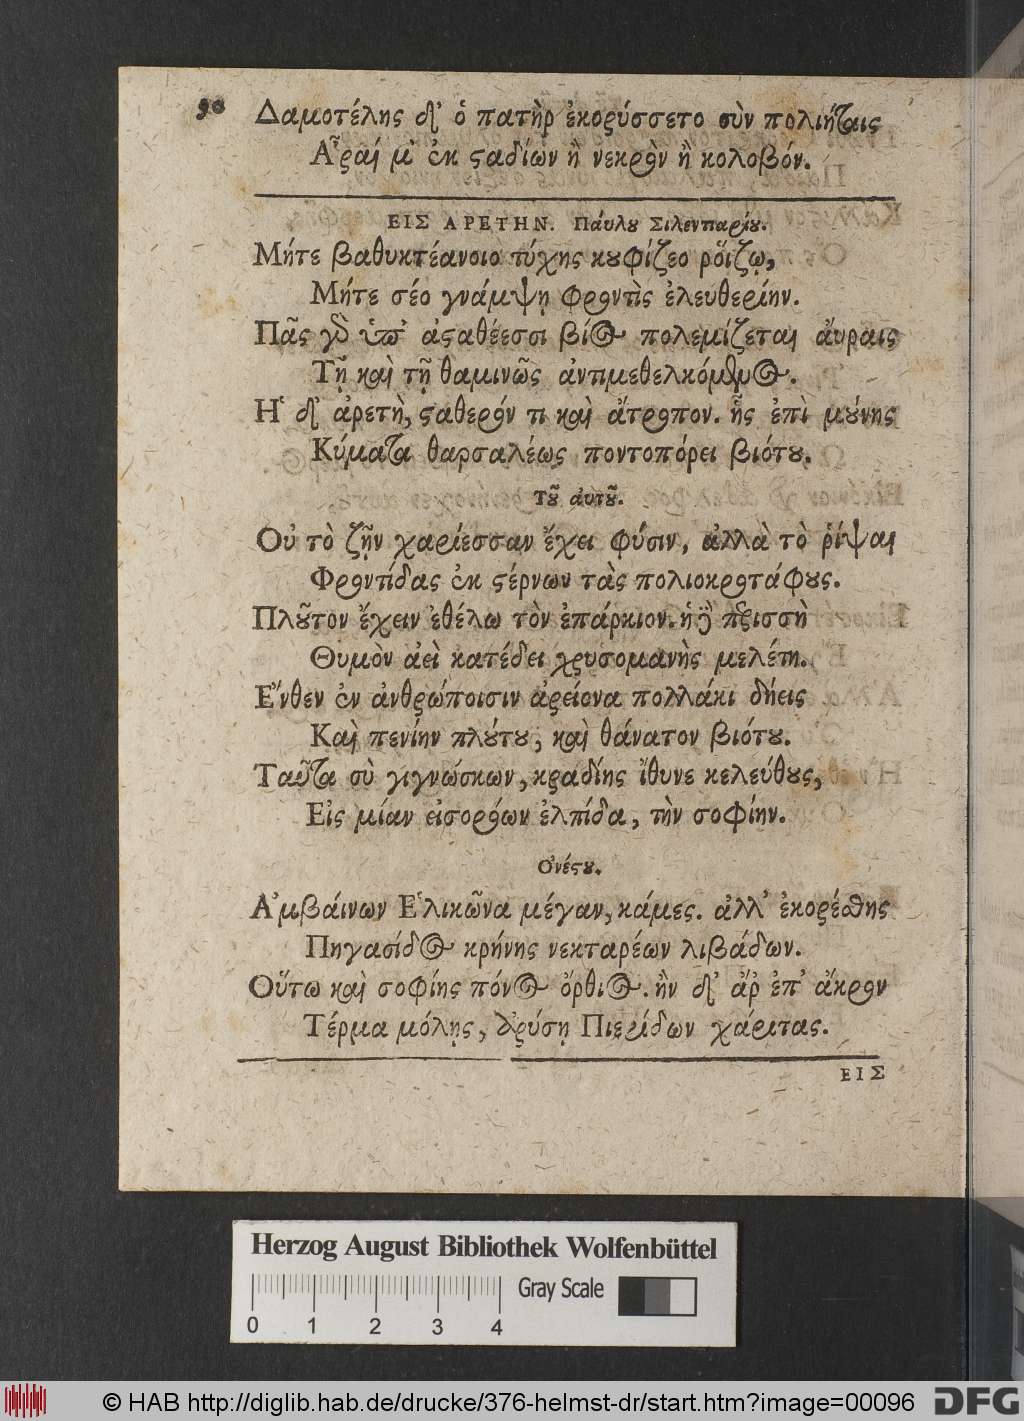 90 Δαμοτέλης δ' ὁ πατὴρ ἐκορύσσετο σὺν πολιήταις
Ἆραί μ' ἐκ σταδίων ἢ νεκρὸν ἢ κολοβόν.
ΕΙΣ ΑΡΕΤΗΝ. Παύλου Σιλεντιαρίου.
Μήτε βαθυκτεάνοιο τύχης κουφίζεο ῥοίζῳ,
Μήτε σέο γνάμψῃ φροντὶς ἐλευθερίην.
Πᾶς γὰρ ὑπ' ἀσταθέεσσι βίος πολεμίζεται αὔραις
Τῇ καὶ τῇ θαμινῶς ἀντιμεθελκόμενος.
Ἡ δ' ἀρετὴ, σταθερόν τι καὶ ἄτροπον. ἧς ἐπὶ μούνης
Κύματα θαρσαλέως ποντοπόρει βιότου.
Τοῦ αὐτοῦ.
Οὐ τὸ ζῇν χαρίεσσαν ἔχει φύσιν, ἀλλὰ τὸ ῥίψαι
Φροντίδας ἐκ στέρνων τὰς πολιοκροτάφους.
Πλοῦτον ἔχειν ἐθέλω τὸν ἐπάρκιον. ἡ δὲ περισσὴ
Θυμὸν ἀεὶ κατέδει χρυσομανὴς μελέτη.
Ἔνθεν ἐν ἀνθρώποισιν ἀρείονα πολλάκι δήεις
Καὶ πενίην πλούτου, καὶ θάνατον βιότου.
Ταῦτα σὺ γιγνώσκων, κραδίης ἴθυνε κελεύθους,
Εἰς μίαν εἰσορόων ἐλπίδα, τὴν σοφίην.
Ὀνέστου.
Ἀμβαίνων Ἑλικῶνα μέγαν, κάμες. ἀλλ' ἐκορέσθης
Πηγασίδος κρήνης νεκταρέων λιβάδων.
Οὕτω καὶ σοφίης πόνος ὄρθιος. ἢν δ' ἄρ' ἐπ' ἄκρον
Τέρμα μόλῃς, ἀρύσῃ Πιερίδων χάριτας.
ΕΙΣ
Herzog August Bibliothek Wolfenbüttel
Gray Scale
0 1 2 3 4
© HAB http://diglib.hab.de/drucke/376-helmst-dr/start.htm?image=00096 DFG